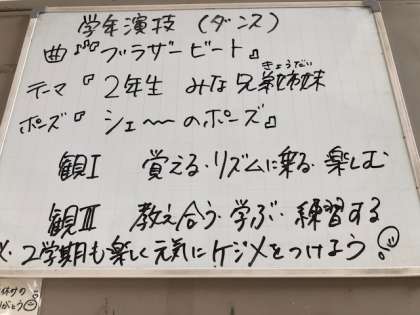 学年演技 (ダンス)
曲『ブラザービート』
テーマ『2年生 みな兄弟姉妹
きょうだい
ポーズ『シェ〜のポーズ』
観Ⅰ 覚える・リズムに乗る・楽しむ
観Ⅲ 教え合う・学ぶ・練習する
2学期も楽しく元気にケジメをつけよう